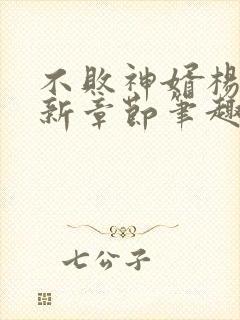 不败神婿杨
新章节笔趣
七公子